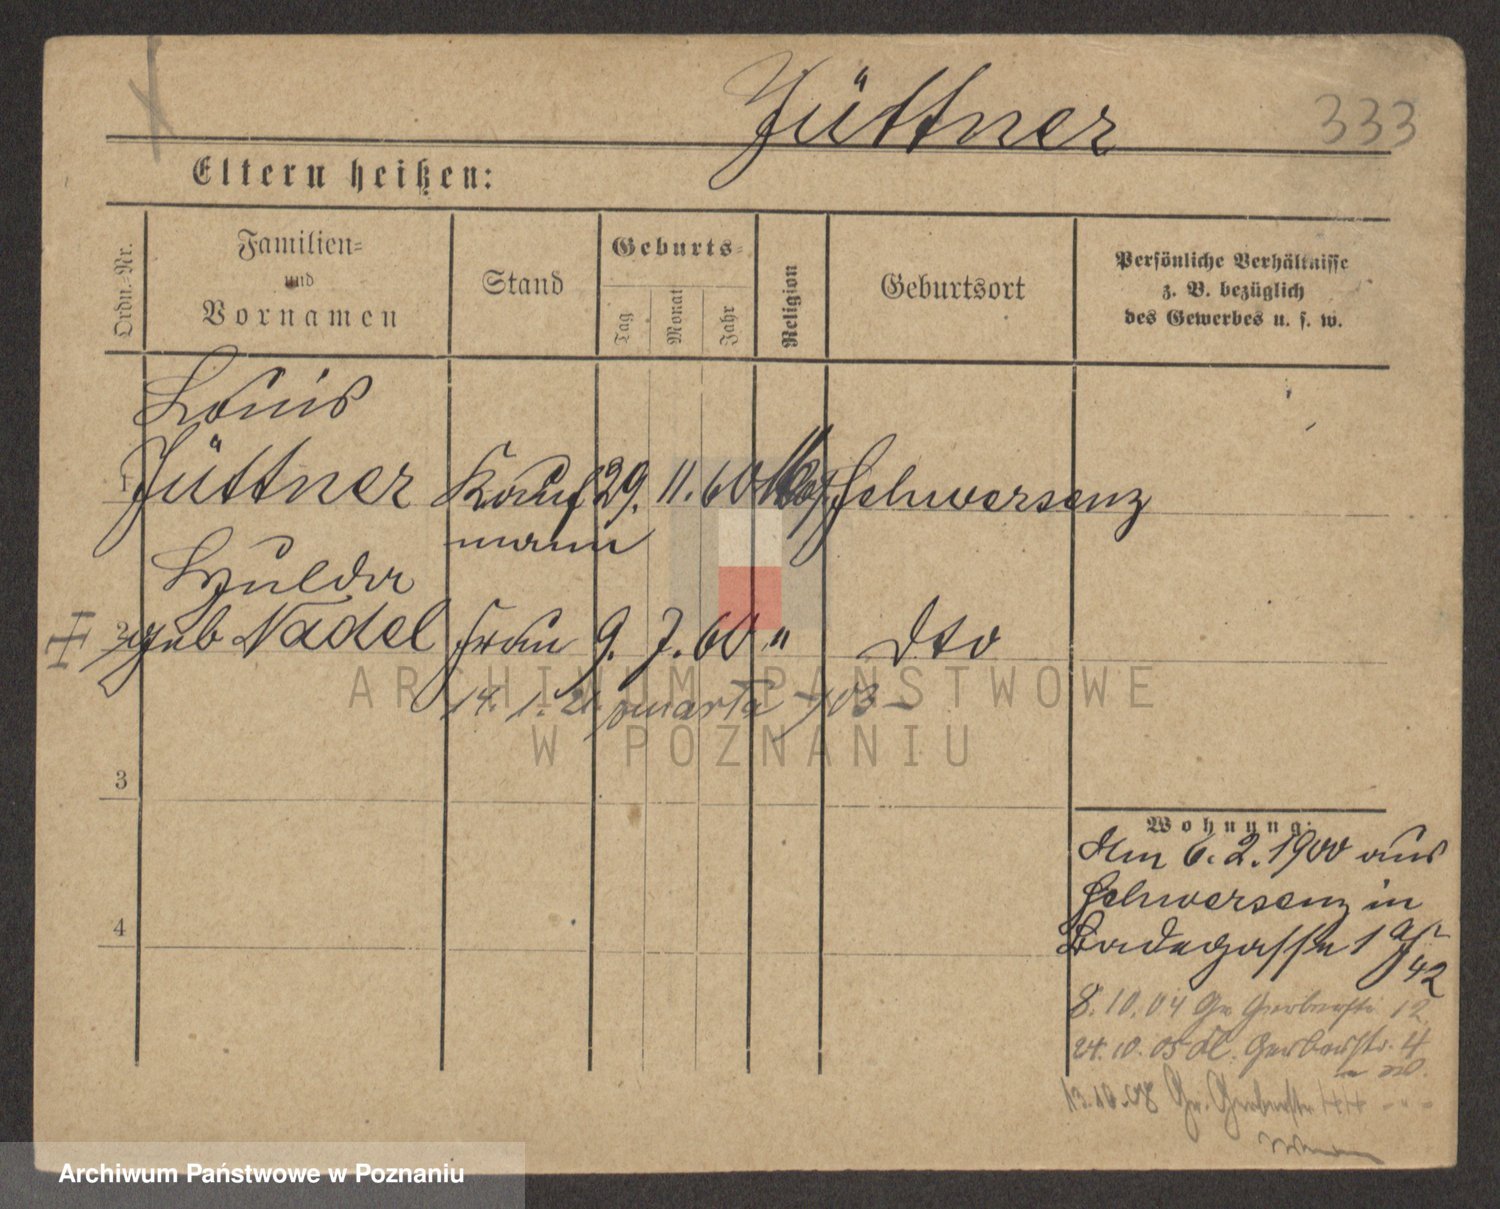 Jüttner
333
Eltern heißen:
Ordn.-Nr.
Familien-
und
Vornamen
Stand
Geburts-
Tag
Monat
Jahr
Religion
Geburtsort
Persönliche Verhältnisse
z. B. bezüglich
des Gewerbes u. s. w.
Louis
1 Jüttner Kauf 29. 11. 60 Schwersenz
mann
Hulda
2 geb Nadel Frau 9. 7. 60 " dto
14. 1. 21
ARCHIWUM PAŃSTWOWE
W POZNANIU
3
4
Wohnung:
Am 6. 2. 1900 aus
Schwersenz in
Badegasse 1
42
8. 10. 04 Gr Gerberstr 12
24. 10. 05 Kl. Gerberstr. 4
13. 10. 08 Gr. Gerberstr 44
Archiwum Państwowe w Poznaniu